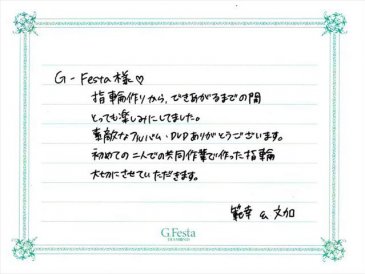 G-Festa様♡
指輪作りから、できあがるまでの間
とっても楽しみにしてました。
素敵なアルバム・DVDありがとうございます。
初めての二人での共同作業で作った指輪
大切にさせていただきます。
範幸 & 文加
G.Festa